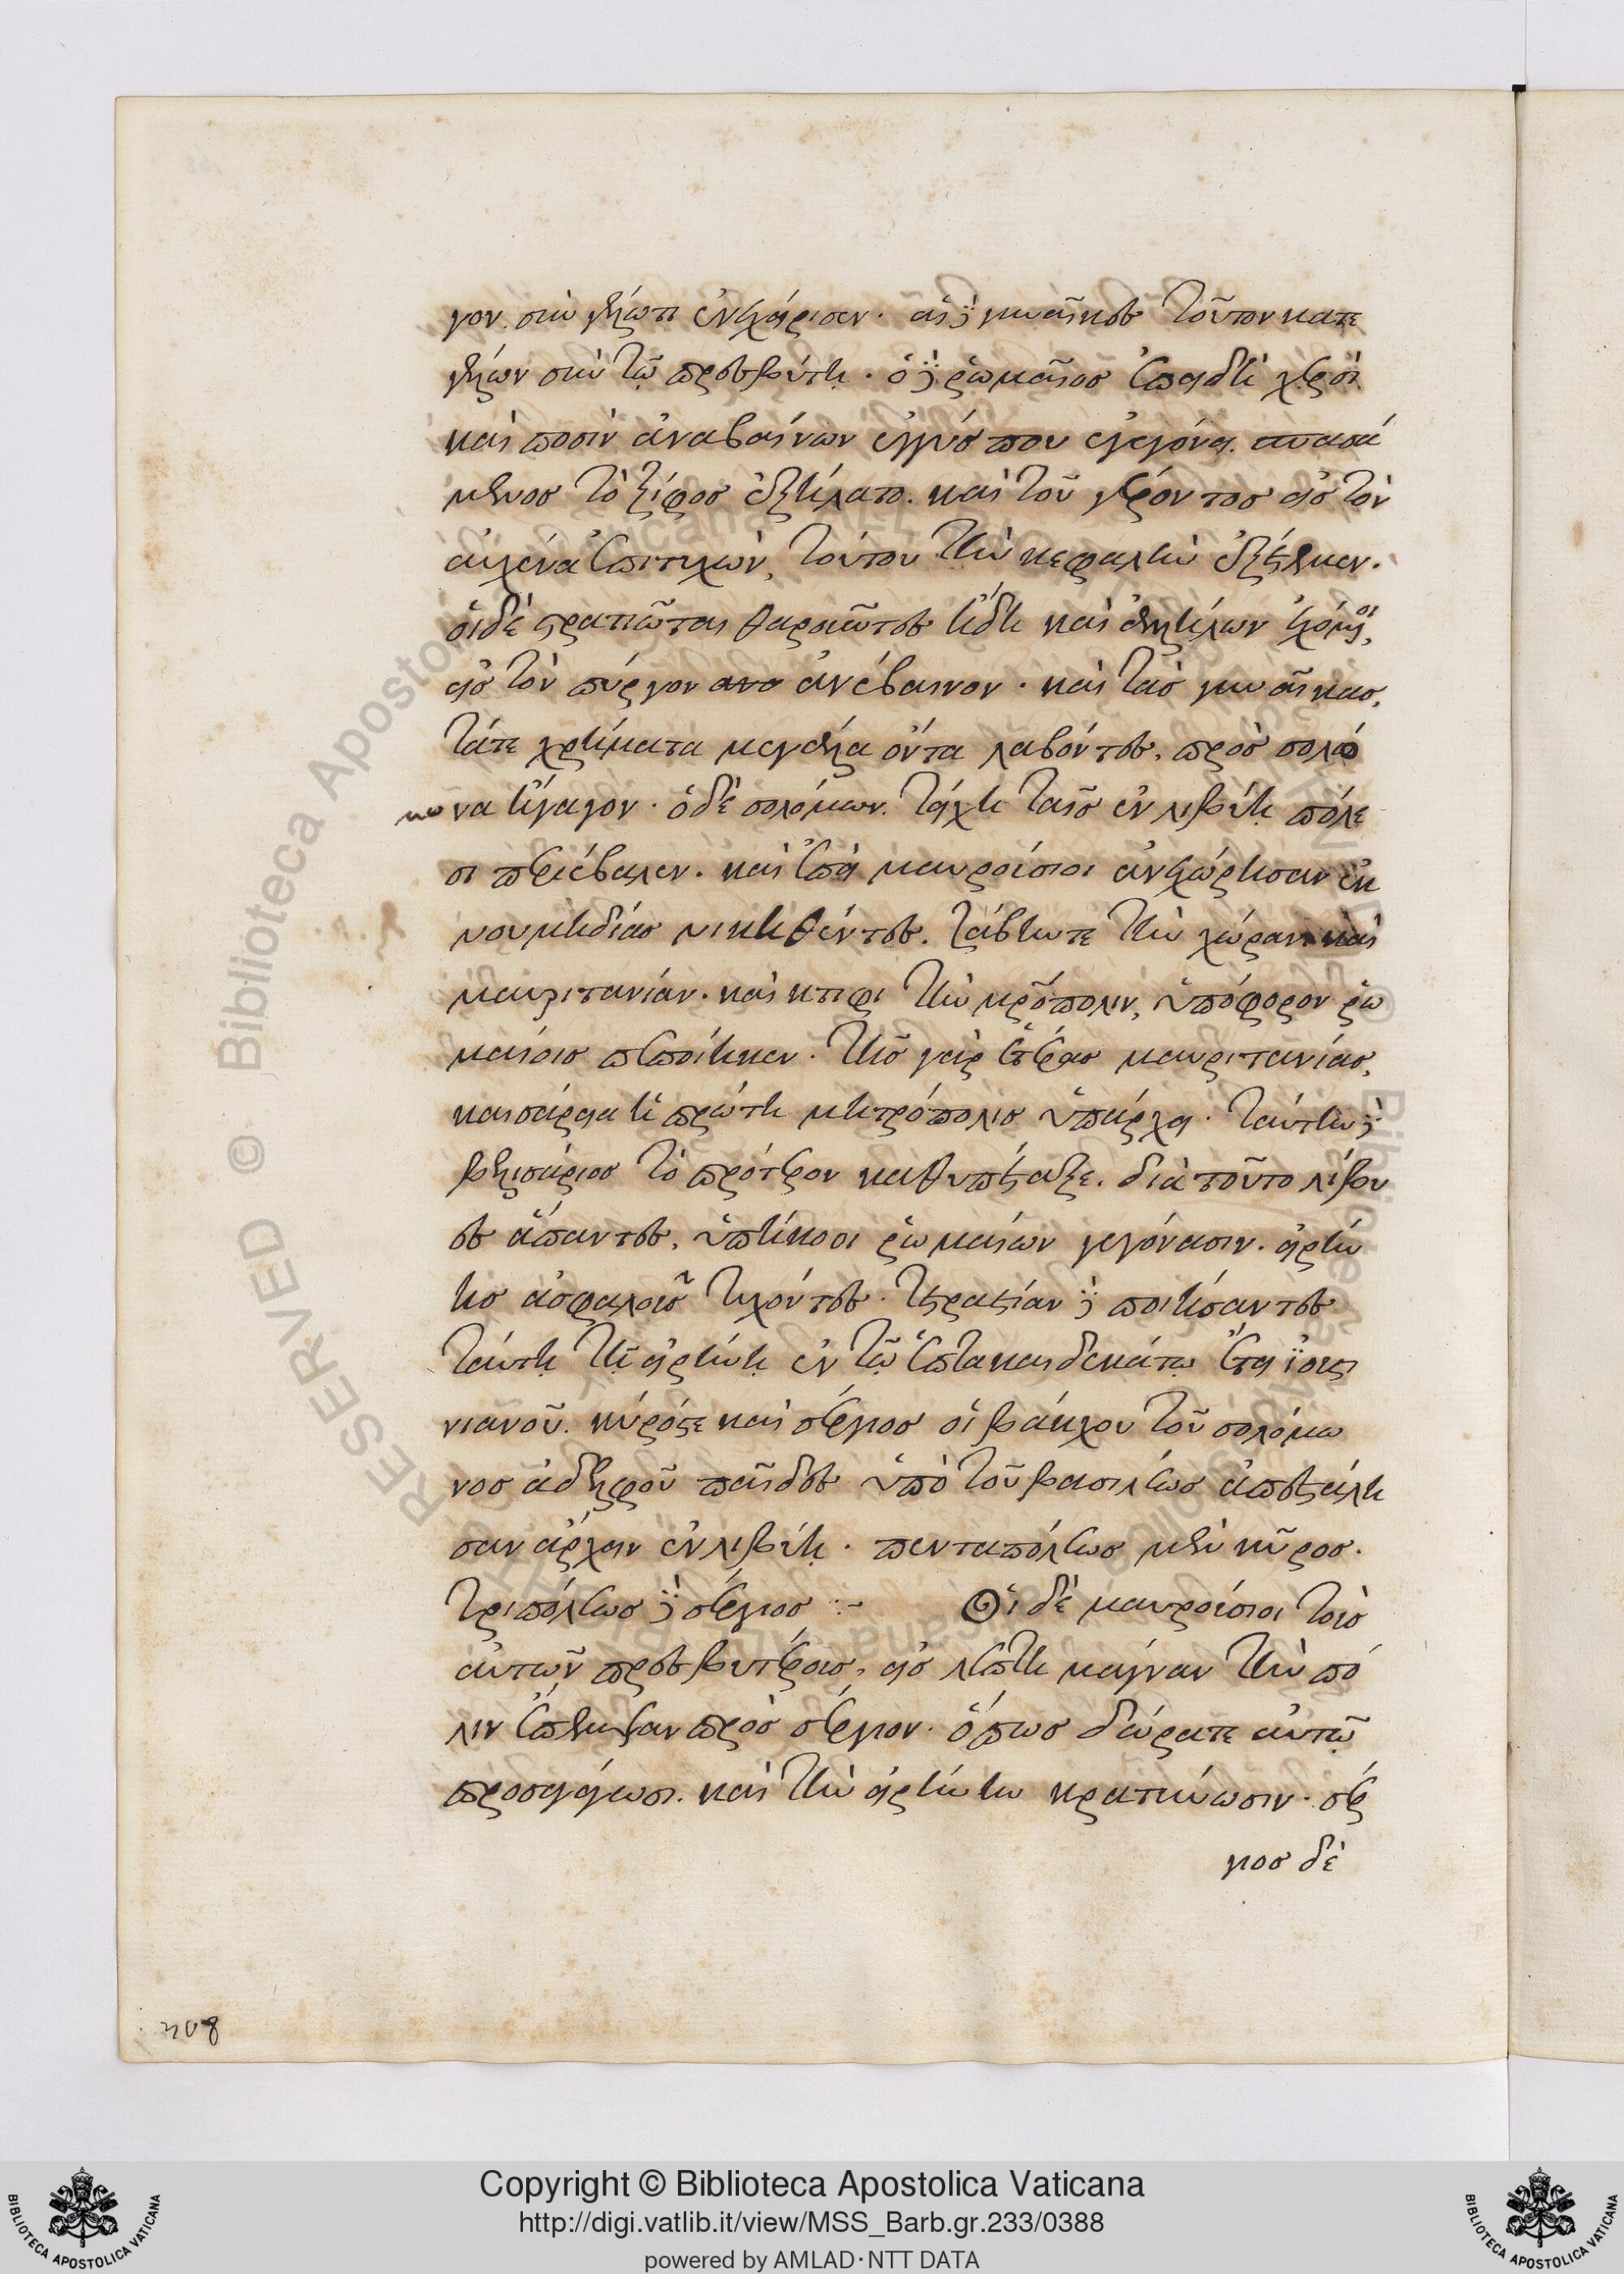 γον. σὺν γέλωτι ἐνεχάρισεν. αἱ δὲ γυναῖκες τοῦτον κατε
γέλων σὺν τῷ πρεσβύτῃ. ὁ δὲ ῥωμαῖος ἐπειδὴ χερσὶ
καὶ ποσὶν ἀναβαίνων ἐγγύς που ἐγεγόνει.
μενος τὸ ξίφος ἐξείλατο. καὶ τοῦ γέροντος εἰς τὸν
αὐχένα ἐπιτυχὼν, τούτου τὴν κεφαλὴν ἐξέτεμεν.
οἱ δὲ στρατιῶται θαρσοῦντες ἤδη καὶ ἀλλήλων ἐχόμενοι,
εἰς τὸν πύργον ανα ἀνέβαινον. καὶ τὰς γυναῖκας,
τά τε χρήματα μεγάλα ὄντα λαβόντες, πρὸς σολό
μωνα ἤγαγον. ὁ δὲ σολόμων. τείχη ταῖς ἐν λιβύῃ πόλε
σι περιέβαλεν. καὶ ἐπεὶ μαυρούσιοι ἀνεχώρησαν ἐκ
νουμηδίας νικηθέντες. ζάβην τε τὴν χώραν καὶ
μαυριτανίαν. καὶ κτιφι τὴν μητρόπολιν, ὑπόφορον ῥω
μαίοις πεποίηκεν. τῆς γὰρ ἑτέρας μαυριτανίας,
καισάρεια ἡ πρώτη μητρόπολις ὑπάρχει. ταύτην δὲ
βελισάριος τὸ πρότερον καθυπέταξε. διὰ τοῦτο λίβυ
ες ἅπαντες, ὑπήκοοι ῥωμαίων γεγόνασιν. εἰρήν
ης ἀσφαλοῦς τυχόντες. τετραετίαν δὲ ποιήσαντες
ταύτῃ τῇ εἰρήνῃ ἐν τῷ ἑπτακαιδεκάτῳ ἔτει ἰουστι
νιανοῦ. κύρός τε καὶ σέργιος οἱ βάκχου τοῦ σολόμω
νος ἀδελφοῦ παῖδες ὑπὸ τοῦ βασιλέως ἀπεστάλη
σαν ἄρχειν ἐν λιβύῃ. πενταπόλεως μὲν κῦρος.
τριπόλεως δὲ σέργιος :- Οἱ δὲ μαυρούσιοι τοῖς
αὐτῶν πρεσβυτέροις, εἰς λέπτη μάγναν τὴν πό
λιν ἔπεμψαν πρὸς σέργιον. ὅπως δῶρά τε αὐτῷ
προσαγάγωσι. καὶ τὴν εἰρήνην κρατύνωσιν. σέρ
γιος δὲ
208
Copyright © Biblioteca Apostolica Vaticana
http://digi.vatlib.it/view/MSS_Barb.gr.233/0388
powered by AMLAD·NTT DATA
BIBLIOTECA APOSTOLICA VATICANA
BIBLIOTECA APOSTOLICA VATICANA